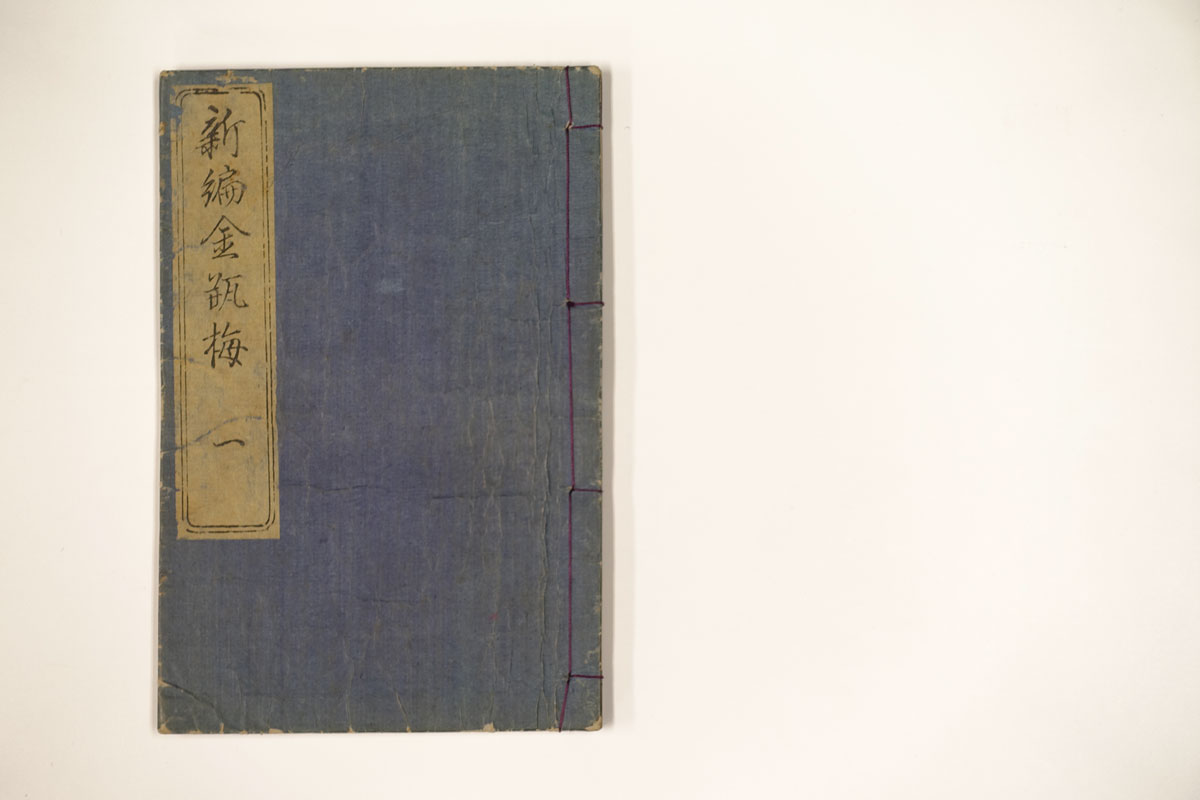 新編金瓶梅 一